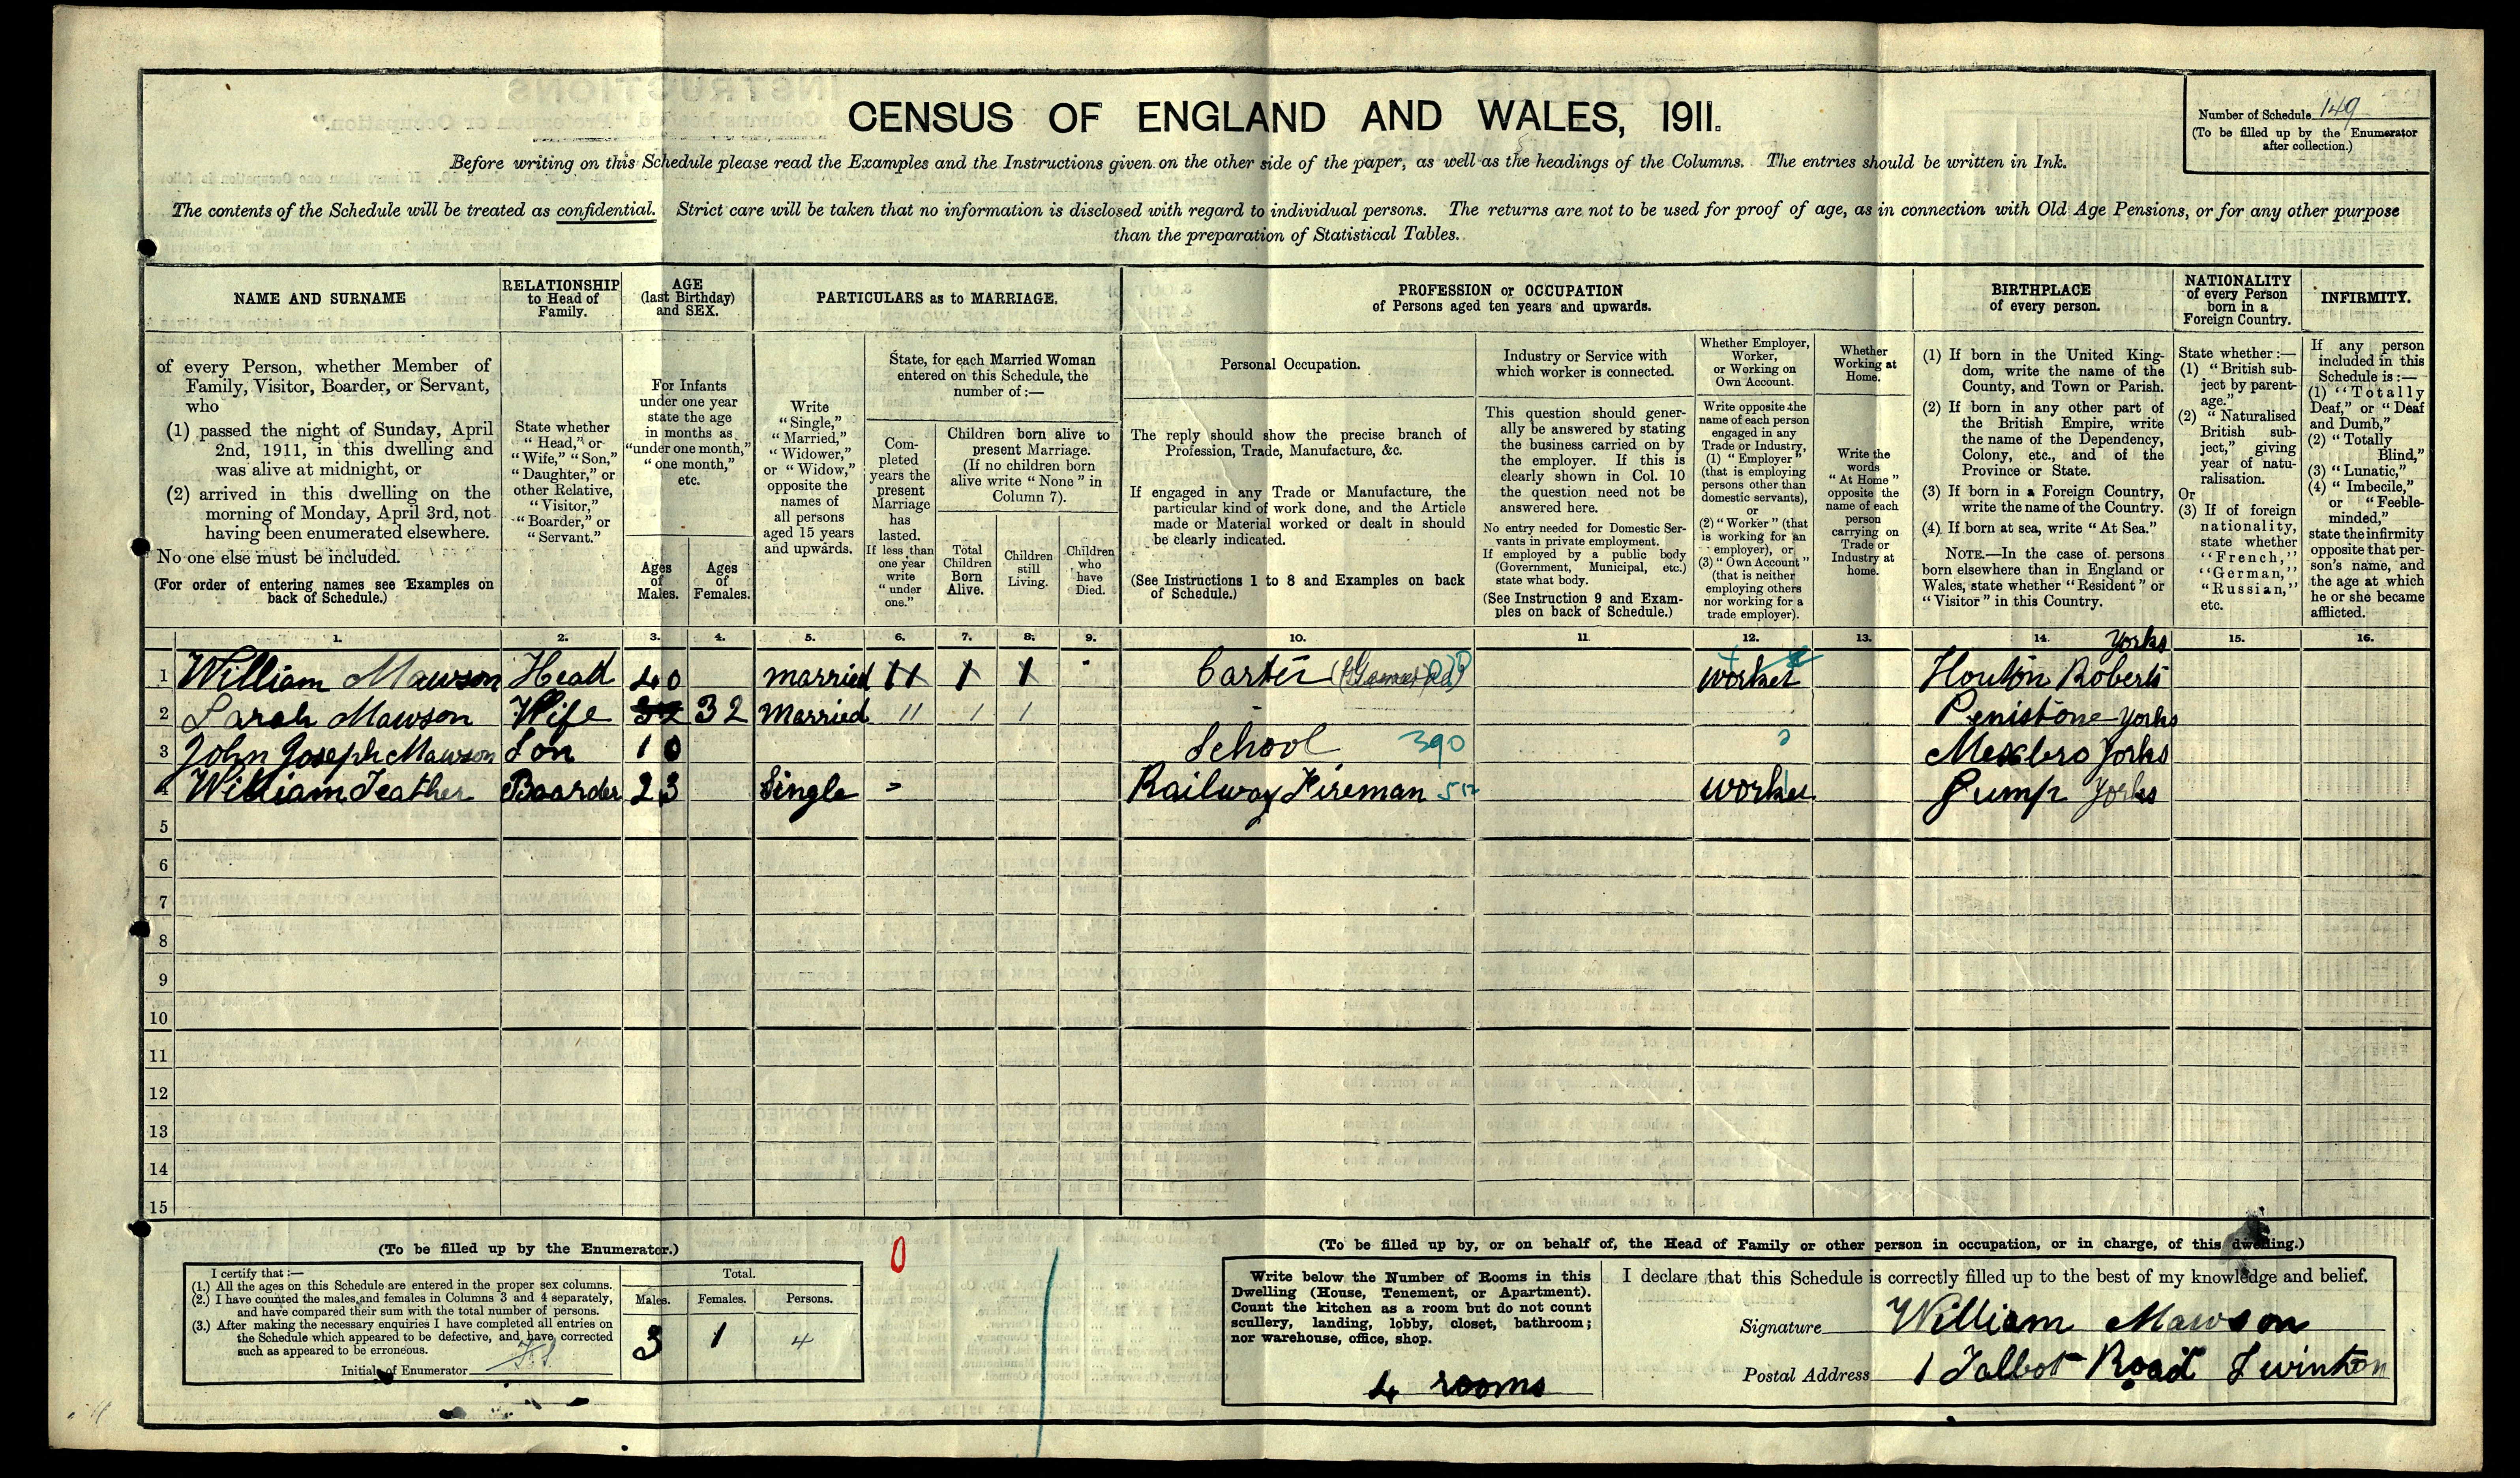 CENSUS OF ENGLAND AND WALES, 1911.
Number of Schedule 149
(To be filled up by the Enumerator
after collection.)
Before writing on this Schedule please read the Examples and the Instructions given on the other side of the paper, as well as the headings of the Columns. The entries should be written in Ink.
The contents of the Schedule will be treated as confidential. Strict care will be taken that no information is disclosed with regard to individual persons. The returns are not to be used for proof of age, as in connection with Old Age Pensions, or for any other purpose
than the preparation of Statistical Tables.
NAME AND SURNAME
RELATIONSHIP
to Head of
Family.
AGE
(last Birthday)
and SEX.
PARTICULARS as to MARRIAGE.
PROFESSION or OCCUPATION
of Persons aged ten years and upwards.
BIRTHPLACE
of every person.
NATIONALITY
of every Person
born in a
Foreign Country.
INFIRMITY.
of every Person, whether Member of
Family, Visitor, Boarder, or Servant,
who
(1) passed the night of Sunday, April
2nd, 1911, in this dwelling and
was alive at midnight, or
(2) arrived in this dwelling on the
morning of Monday, April 3rd, not
having been enumerated elsewhere.
No one else must be included.
(For order of entering names see Examples on
back of Schedule.)
State whether
"Head," or
"Wife," "Son,"
"Daughter," or
other Relative,
"Visitor,"
"Boarder," or
"Servant."
For Infants
under one year
state the age
in months as
"under one month,"
"one month,"
etc.
Ages
of
Males.
Ages
of
Females.
Write
"Single,"
"Married,"
"Widower,"
or "Widow,"
opposite the
names of
all persons
aged 15 years
and upwards.
State, for each Married Woman
entered on this Schedule, the
number of:—
Com-
pleted
years the
present
Marriage
has
lasted.
If less than
one year
write
"under
one."
Children born alive to
present Marriage.
(If no children born
alive write "None" in
Column 7).
Total
Children
Born
Alive.
Children
still
Living.
Children
who
have
Died.
Personal Occupation.
The reply should show the precise branch of
Profession, Trade, Manufacture, &c.
If engaged in any Trade or Manufacture, the
particular kind of work done, and the Article
made or Material worked or dealt in should
be clearly indicated.
(See Instructions 1 to 8 and Examples on back
of Schedule.)
Industry or Service with
which worker is connected.
This question should gener-
ally be answered by stating
the business carried on by
the employer. If this is
clearly shown in Col. 10
the question need not be
answered here.
No entry needed for Domestic Ser-
vants in private employment.
If employed by a public body
(Government, Municipal, etc.)
state what body.
(See Instruction 9 and Exam-
ples on back of Schedule.)
Whether Employer,
Worker,
or Working on
Own Account.
Write opposite the
name of each person
engaged in any
Trade or Industry,
(1) "Employer"
(that is employing
persons other than
domestic servants),
or
(2) "Worker" (that
is working for an
employer), or
(3) "Own Account"
(that is neither
employing others
nor working for a
trade employer).
Whether
Working at
Home.
Write the
words
"At Home"
opposite the
name of each
person
carrying on
Trade or
Industry at
home.
(1) If born in the United King-
dom, write the name of the
County, and Town or Parish.
(2) If born in any other part of
the British Empire, write
the name of the Dependency,
Colony, etc., and of the
Province or State.
(3) If born in a Foreign Country,
write the name of the Country.
(4) If born at sea, write "At Sea."
NOTE.—In the case of persons
born elsewhere than in England or
Wales, state whether "Resident" or
"Visitor" in this Country.
State whether:—
(1) "British sub-
ject by parent-
age."
(2) "Naturalised
British sub-
ject," giving
year of natu-
ralisation.
Or
(3) If of foreign
nationality,
state whether
"French,"
"German,"
"Russian,"
etc.
If any person
included in this
Schedule is:—
(1) "Totally
Deaf," or "Deaf
and Dumb,"
(2) "Totally
Blind,"
(3) "Lunatic,"
(4) "Imbecile,"
or "Feeble-
minded,"
state the infirmity
opposite that per-
son's name, and
the age at which
he or she became
afflicted.
1. 2. 3. 4. 5. 6. 7. 8. 9. 10. 11. 12. 13. 14. 15. 16.
Yorks
1 William Mawson Head 40 married 11 1 1 - Carter worker Houton Roberts
2 Sarah Mawson Wife 32 32 Married 11 1 1 - Penistone Yorks
3 John Joseph Mawson Son 10 School 390 Mexbro Yorks
4 William Feather Boarder 23 Single - Railway Fireman 512 worker Jump Yorks
5
6
7
8
9
10
11
12
13
14
15
(To be filled up by the Enumerator.)
I certify that:—
(1.) All the ages on this Schedule are entered in the proper sex columns.
(2.) I have counted the males and females in Columns 3 and 4 separately,
and have compared their sum with the total number of persons.
(3.) After making the necessary enquiries I have completed all entries on
the Schedule which appeared to be defective, and have corrected
such as appeared to be erroneous.
Initials of Enumerator
Total.
Males. Females. Persons.
3 1 4
0
(To be filled up by, or on behalf of, the Head of Family or other person in occupation, or in charge, of this dwelling.)
Write below the Number of Rooms in this
Dwelling (House, Tenement, or Apartment).
Count the kitchen as a room but do not count
scullery, landing, lobby, closet, bathroom;
nor warehouse, office, shop.
4 rooms
I declare that this Schedule is correctly filled up to the best of my knowledge and belief.
Signature William Mawson
Postal Address 1 Talbot Road Swinton